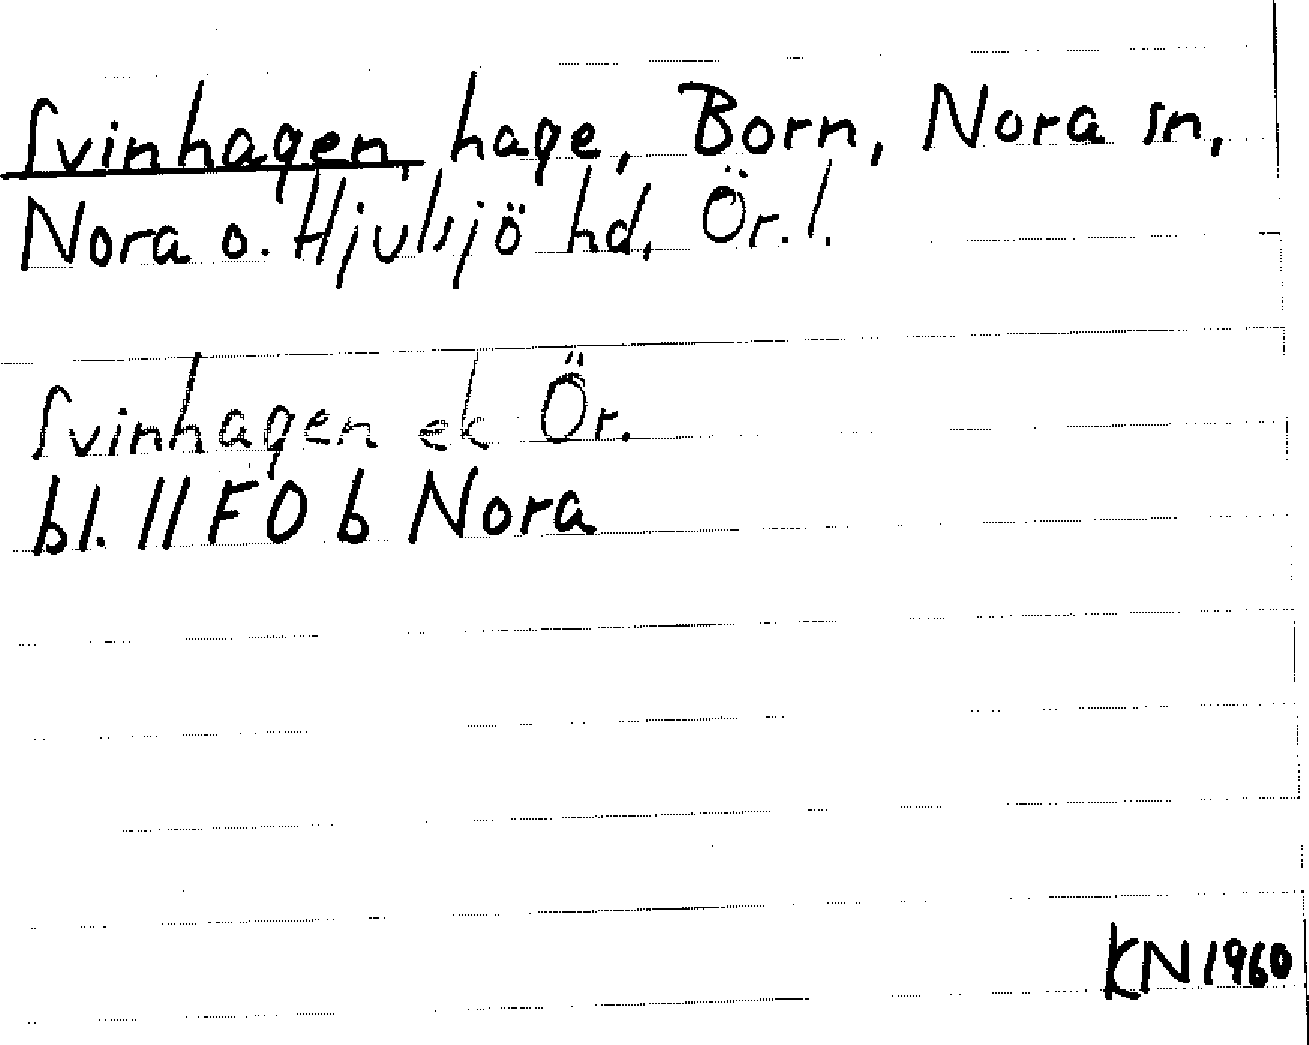 Svinhagen, hage, Born, Nora sn,
Nora o. Hjulsjö hd, Ör. l.
Svinhagen ek Ör.
bl. 11 F 0 b Nora
KN 1960